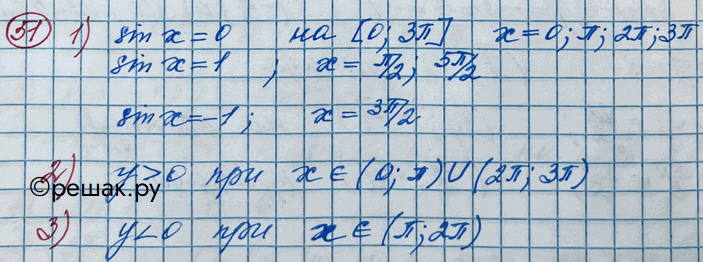 51 1) sin x = 0 на [0; 3π] x = 0; π; 2π; 3π
sin x = 1 ; x = π/2; 5π/2
sin x = -1; x = 3π/2
2) y > 0 при x ∈ (0; π) U (2π; 3π)
©решак.ру
3) y < 0 при x ∈ (π; 2π)